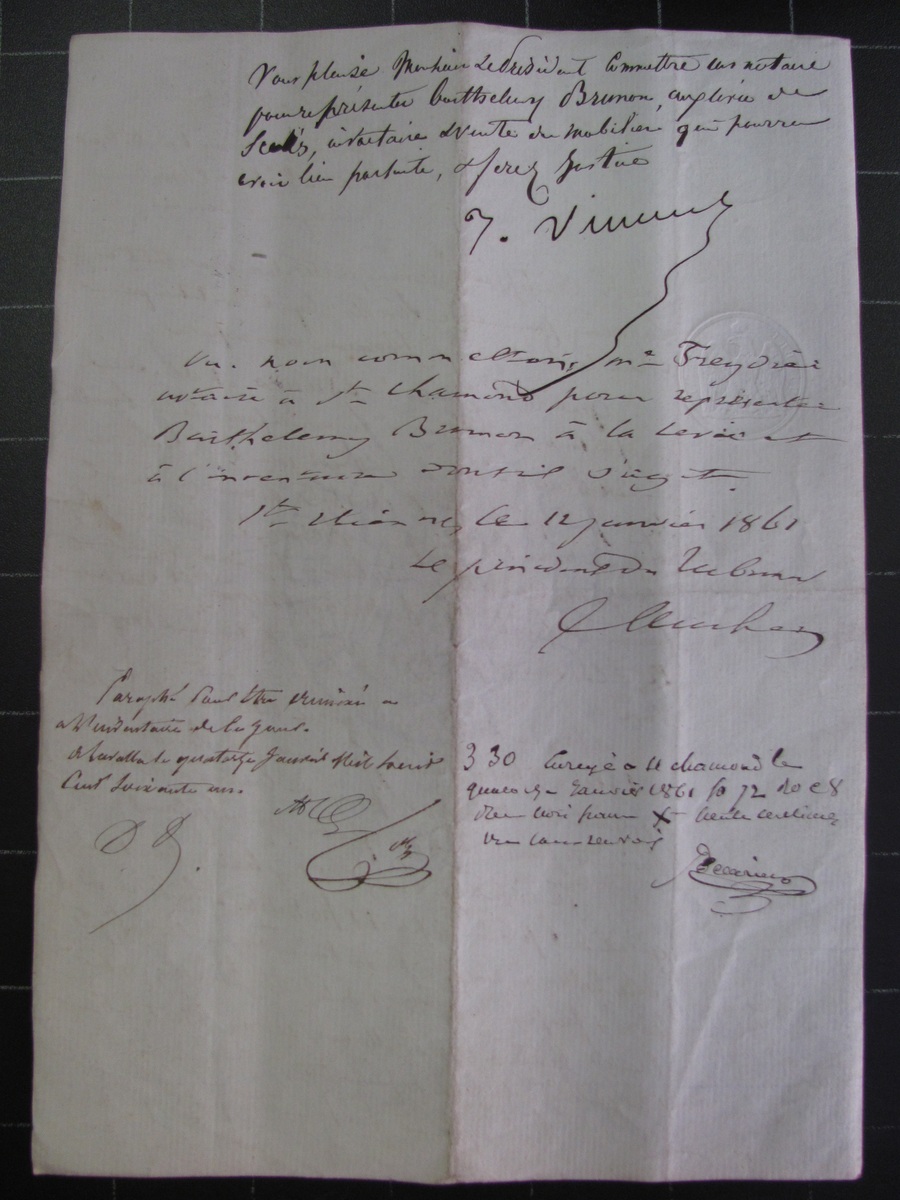 Vous plaise Monsieur Le Président Commettre un notaire
pour représenter Barthelemy Brunon, à la levée de
Scellés, inventaire & vente du mobilier qui pourra
avoir lieu par suite, & ferez Justice
J. Vincent
Vu. nous commettons, me Freydier
notaire à St chamond pour représenter
Barthelemy Brunon à la levée et
à l'inventaire dont il s'agit.
St Etienne, le 12 janvier 1861
Le président du Tribunal
Paraphé pour être annexé a
a l'inventaire de ce jour.
à Lavalla le quatorze Janvier Mil huit
Cent Soixante un.
330 Enregé a St chamond le
quatorze Janvier 1861 fo 72 Ro c 8
Reçu trois francs trente centimes